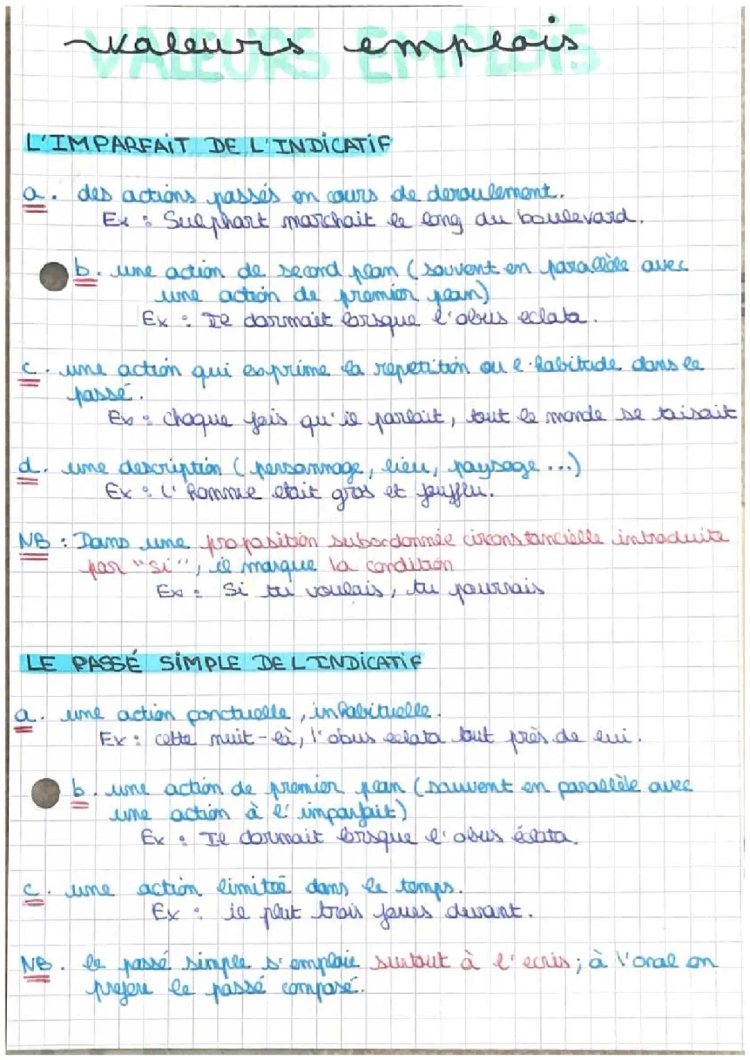 valeurs emplois
VALEURS EMPLOIS
L'IMPARFAIT DE L'INDICATIF
a. des actions passés en cours de deroulement.
Ex : Sulphart marchait le long du boulevard.
b. une action de second plan (souvent en parallèle avec
une action de premier plan)
Ex : Il dormait lorsque l'obus eclata.
c. une action qui exprime la repetition ou l'habitude dans le
passé.
Ex : chaque fois qu'il parlait, tout le monde se taisait
d. une description (personnage, lieu, paysage ...)
Ex : L'homme etait gros et joufflu.
NB : Dans une proposition subordonnée circonstancielle introduite
par "si", il marque la condition
Ex : Si tu voulais, tu pourrais
LE PASSÉ SIMPLE DE L'INDICATIF
a. une action ponctuelle, inhabituelle.
Ex : cette nuit-là, l'obus eclata tout près de lui.
b. une action de premier plan (souvent en parallèle avec
une action à l'imparfait)
Ex : Il dormait lorsque l'obus éclata.
c. une action limitée dans le temps.
Ex : il plut trois jours durant.
NB. le passé simple s'emploie surtout à l'ecris; à l'oral on
prefere le passé composé.